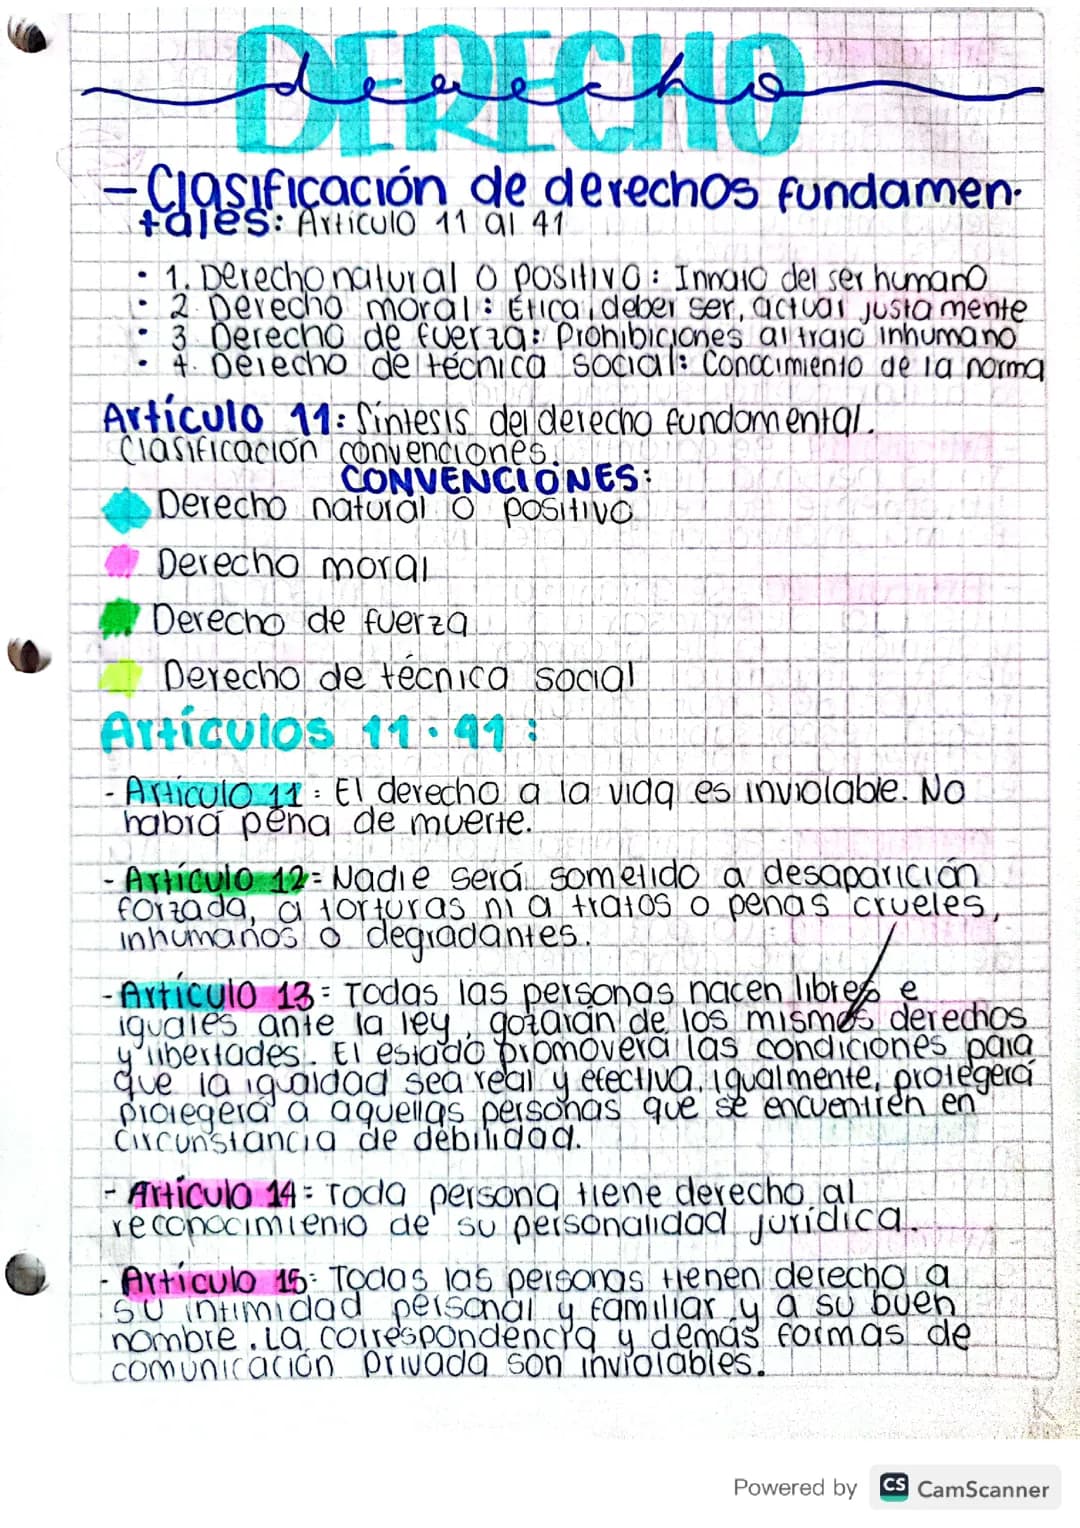 DERECHO
derecho
- Clasificación de derechos fundamen-
tales: Artículo 11 al 41
• 1. Derecho natural o positivo: Innato del ser humano
• 2. Derecho moral: Ética, deber ser, actuar justamente
• 3. Derecho de fuerza: Prohibiciones al trato inhumano
• 4. Derecho de técnica social: Conocimiento de la norma
Artículo 11: Síntesis del derecho fundamental.
Clasificación convenciones.
CONVENCIONES:
Derecho natural o positivo
Derecho moral
Derecho de fuerza
Derecho de técnica social
Artículos 11·41:
- Artículo 11: El derecho a la vida es inviolable. No
habrá pena de muerte.
- Artículo 12= Nadie será sometido a desaparición
forzada, a torturas ni a tratos o penas crueles,
inhumanos o degradantes.
- Artículo 13= Todas las personas nacen libres e
iguales ante la ley, gozarán de los mismos derechos
y libertades. El estado promoverá las condiciones para
que la igualdad sea real y efectiva, igualmente, protegerá
protegerá a aquellas personas que se encuentren en
circunstancia de debilidad.
- Artículo 14= Toda persona tiene derecho al
reconocimiento de su personalidad jurídica.
- Artículo 15= Todas las personas tienen derecho a
su intimidad personal y familiar y a su buen
nombre. La correspondencia y demás formas de
comunicación privada son inviolables.
K
Powered by CS CamScanner